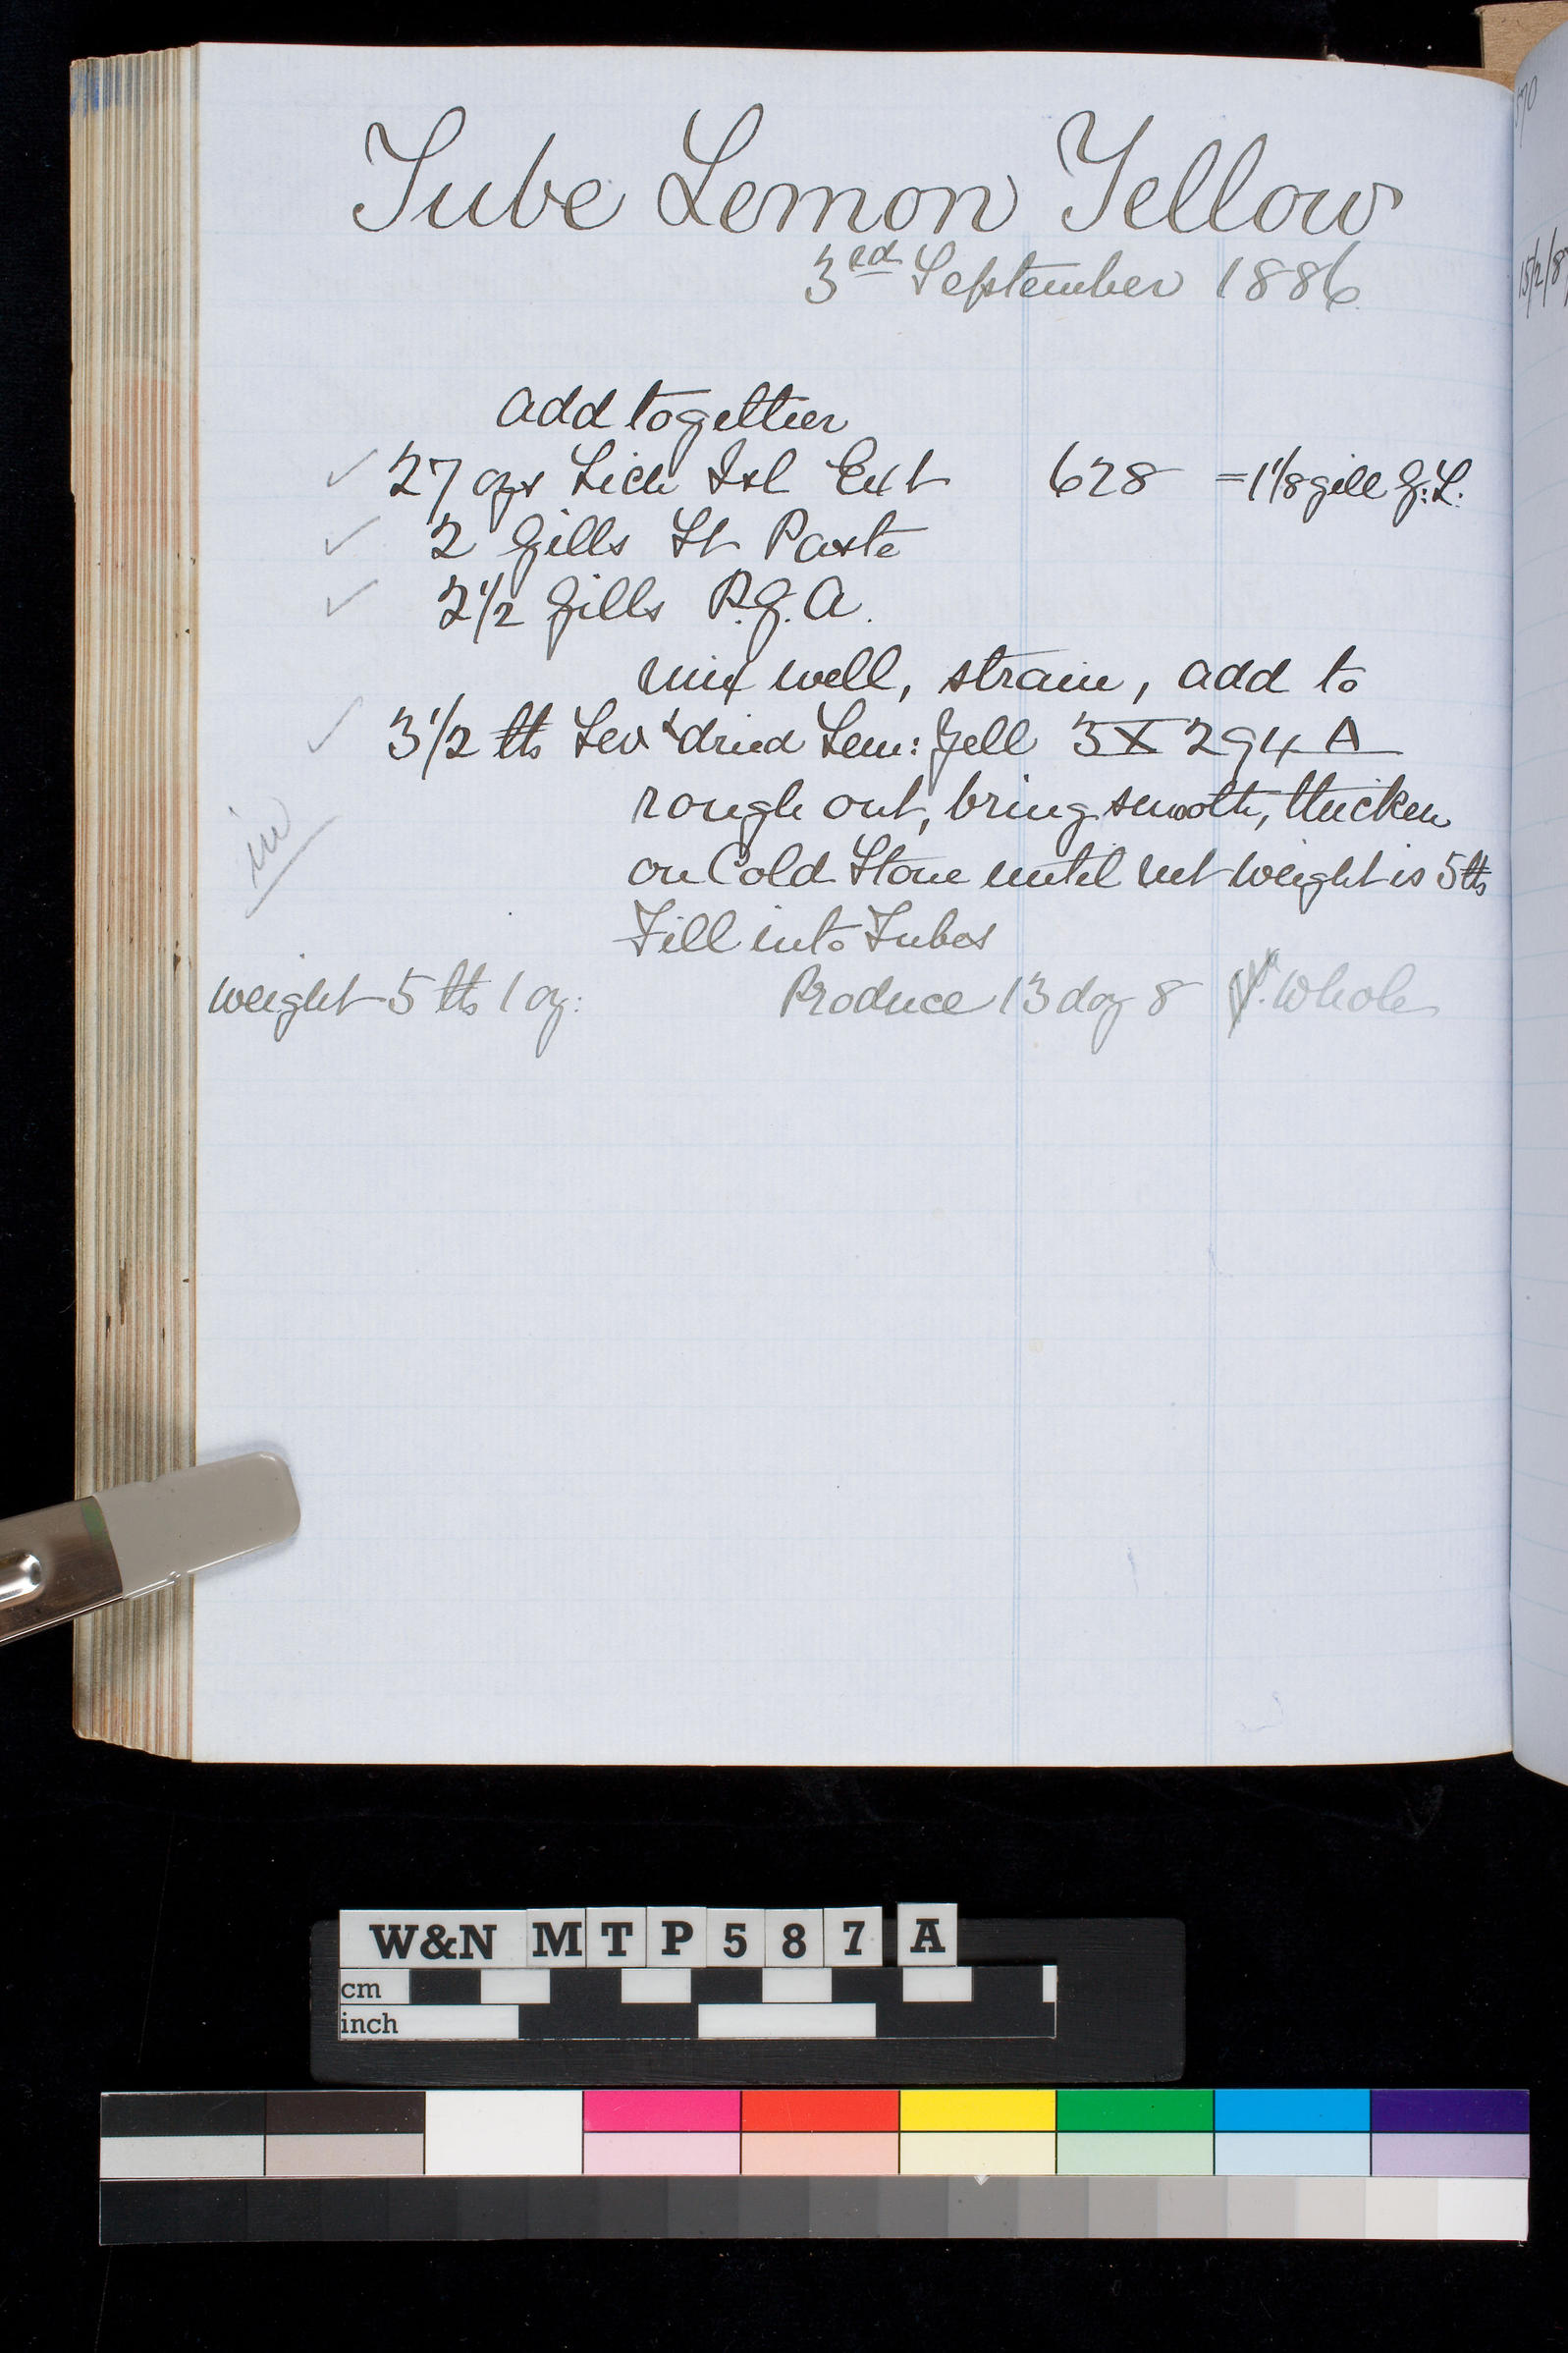 Tube Lemon Yellow
3rd September 1886
add together
✓ 27 ozs Lich Isl Ext 628 = 1 1/8 gill G.L.
✓ 2 Gills St Paste
✓ 2 1/2 Gills P.G.A.
mix well, strain, add to
✓ 3 1/2 lbs Lev & dried Lem: Yell 3X294A
rough out, bring smooth, thicken
in
on Cold Stone until net weight is 5 lbs
Fill into Tubes
weight 5 lbs 1 oz: Produce 13 doz 8 Whole
570
15/2/8
W&N MTP587A
cm
inch